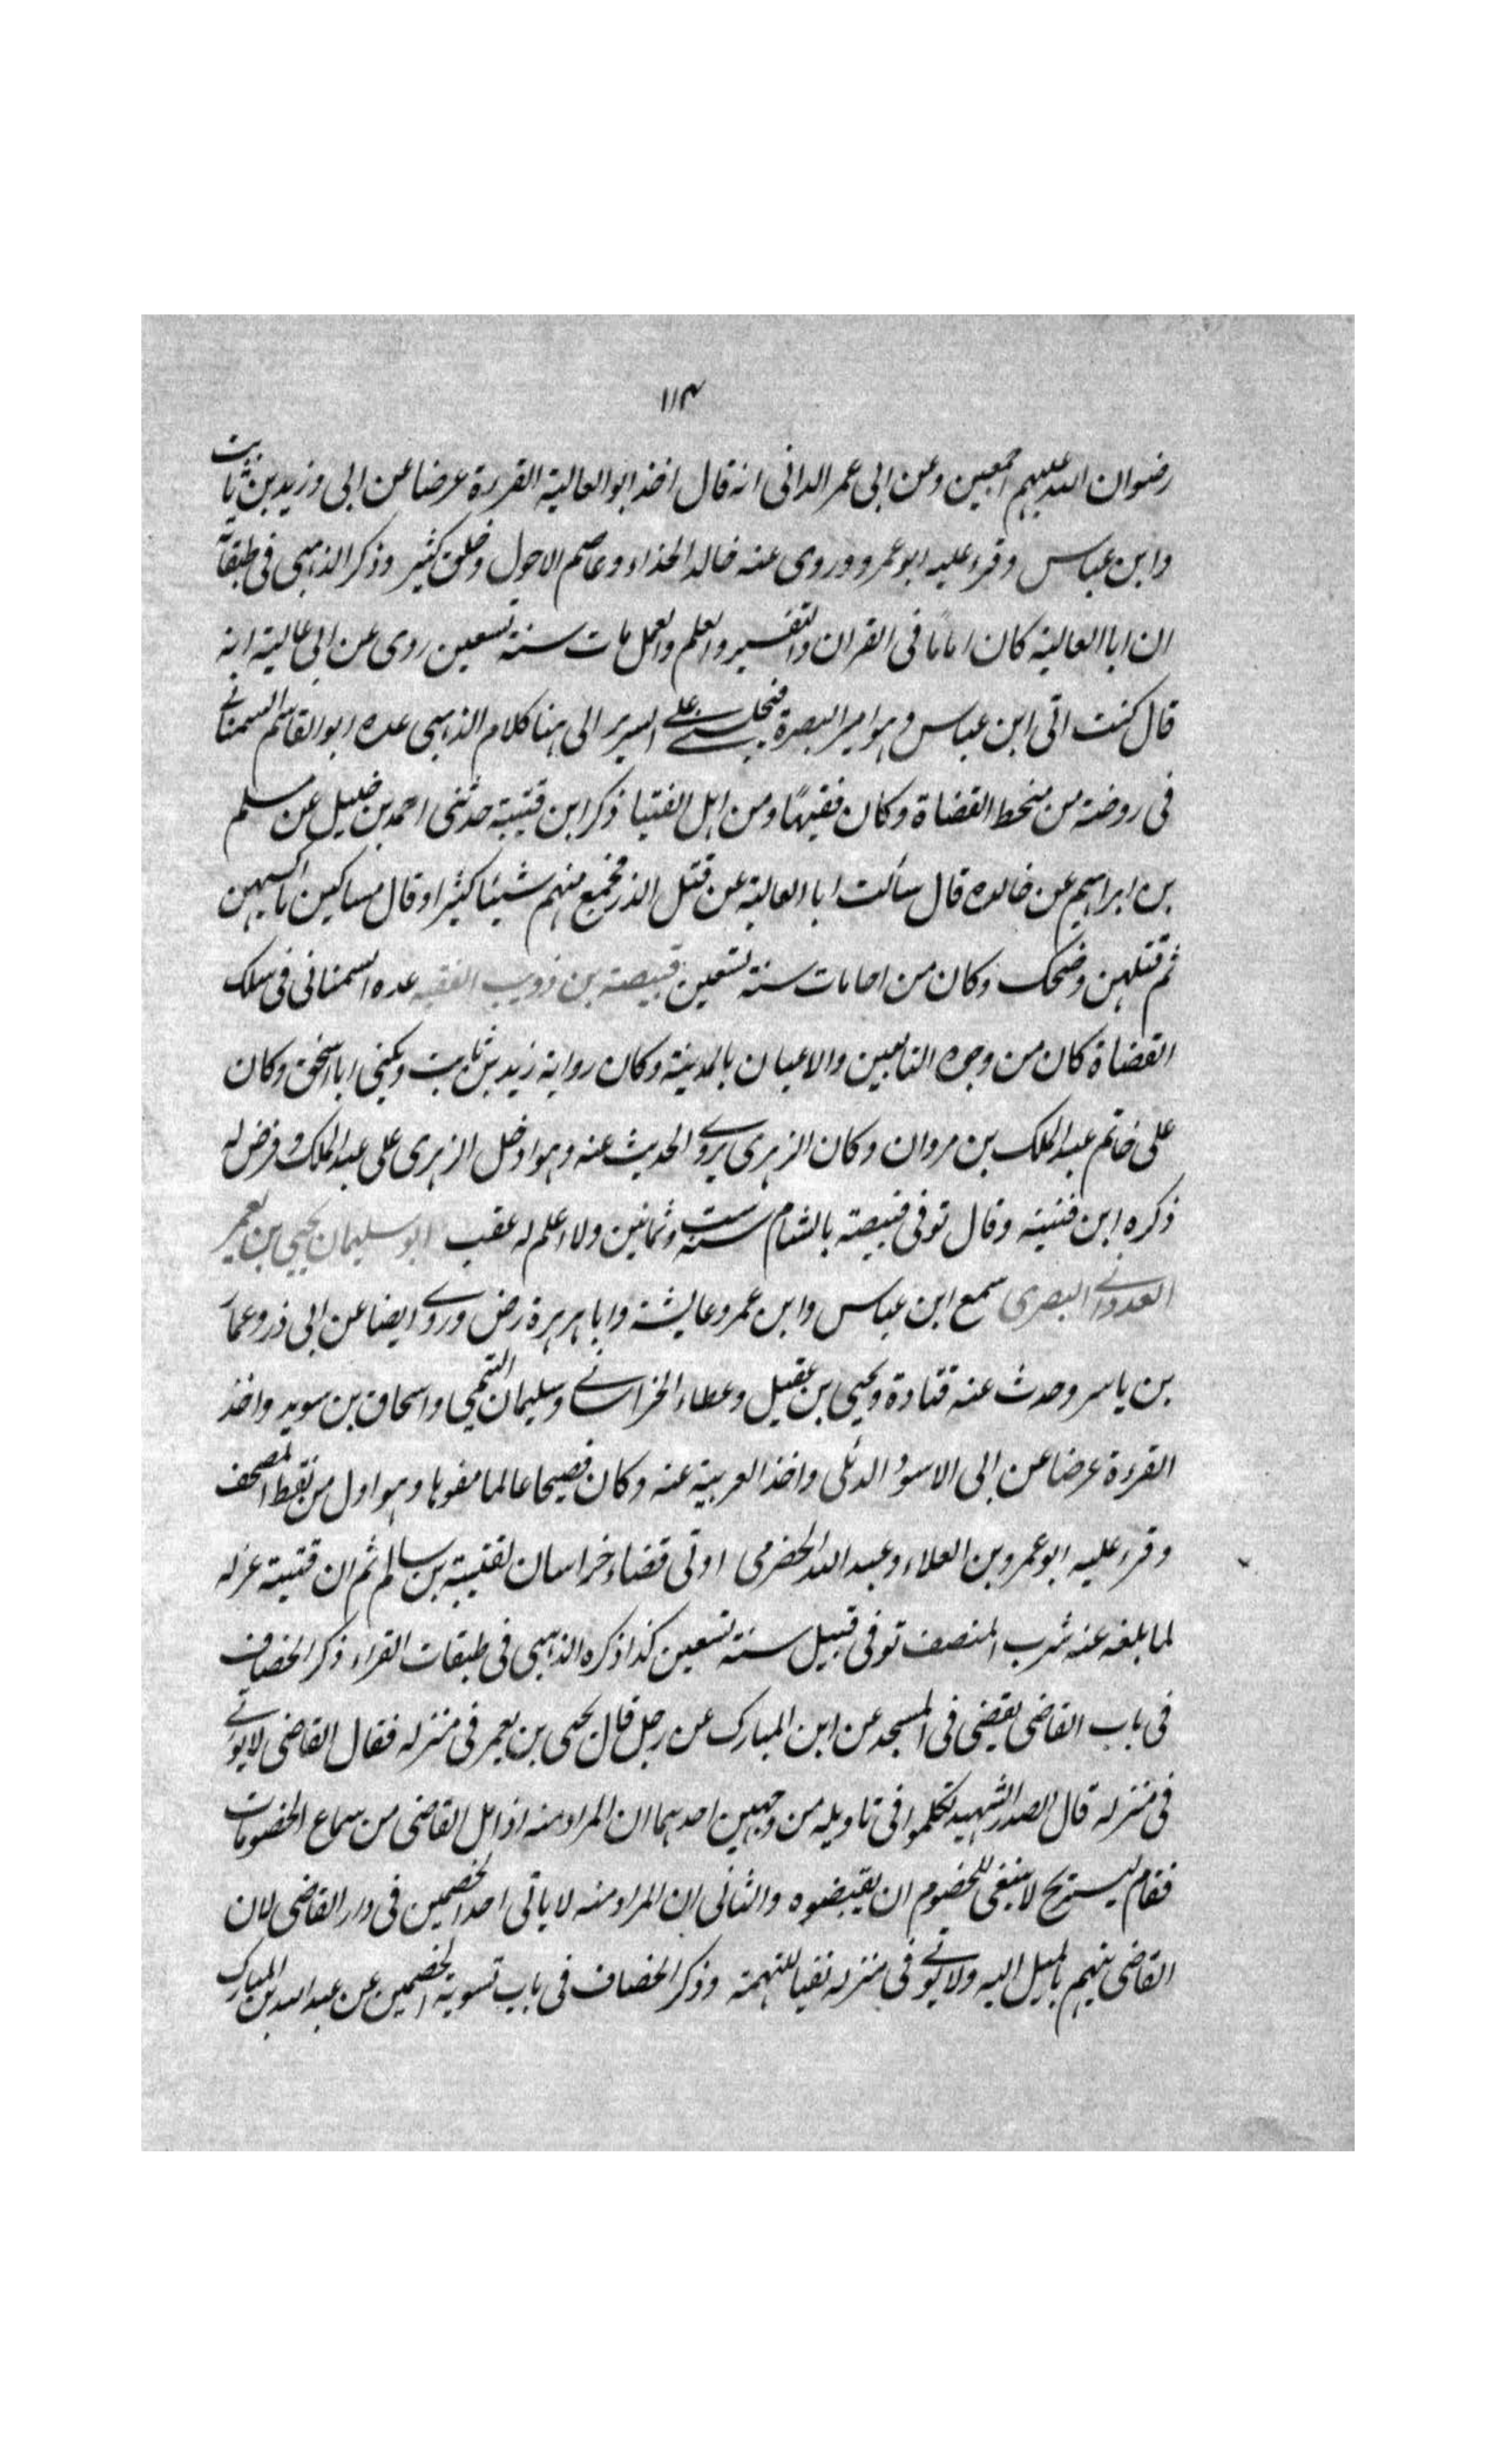 ١١٤
رضوان الله عليهم اجمعين وعن ابى عمر الدانى انه قال اخذ ابو العالية القرءة عرضا عن ابى وزيد بن ثابت
وابن عباس وقرء عليه ابو عمرو وروى عنه خالد الحذاء وعاصم الاحول وخلق كثير وذكر الذهبى فى طبقاته
ان ابا العالية كان اماما فى القران والتفسير والعلم والعمل مات سنة تسعين روى عن ابى عالية انه
قال كنت اتى ابن عباس وهو امير البصرة فيجلسنى على السرير الى هنا كلام الذهبى عده ابو القاسم السمنانى
فى روضته من منخط القضاة وكان فقيها ومن اهل الفتيا ذكر ابن قتيبة حدثنى احمد بن خليل عن مسلم
بن ابراهيم عن خالده قال سألت ابا العالية عن قتل الذر فجمع منهم شيئا كثيرا وقال مساكين ما اكيسهن
ثم قتلهن وضحك وكان من احامات سنة تسعين قبيصة بن ذويب الفقيه عده السمنانى فى سلك
القضاة كان من وجوه التابعين والاعيان بالمدينة وكان رواية زيد بن ثابت ويكنى ابا اسحق وكان
على خاتم عبد الملك بن مروان وكان الزهرى يروى الحديث عنه وهو ادخل الزهرى على عبد الملك وفرض له
ذكره ابن قتيبة وقال توفى قبيصة بالشام سنة ست وثمانين ولا اعلم له عقب ابو سليمان يحيى بن يعمر
العدوانى البصرى سمع ابن عباس وابن عمر وعايشة وابا هريرة رض وروى ايضا عن ابى ذر وعمار
بن ياسر وحدث عنه قتادة ويحيى بن عقيل وعطاء الخراسانى وسليمان التيمى واسحاق بن سويد واخذ
القرءة عرضا عن ابى الاسود الدئلى واخذ العربية عنه وكان فصيحا عالما مفوها وهو اول من نقط المصحف
وقرء عليه ابو عمرو بن العلاء وعبد الله الحضرمى اوتى قضاء خراسان لقتيبة بن سالم ثم ان قتيبة عزله
لما بلغه عنه شرب المنصف توفى قبيل سنة تسعين كذا ذكره الذهبى فى طبقات القراء ذكر الخصاف
فى باب القاضى يقضى فى المسجد عن ابن المبارك عن رجل قال يحيى بن يعمر فى منزله فقال القاضى لا يوتى
فى منزله قال الصدر الشهيد تكلموا فى تاويله من وجهين احدهما ان المراد منه اذا مل القاضى من سماع الخصومات
فقام ليستريح لا ينبغى للخصوم ان يقبضوه والثانى ان المراد منه لا ياتى احد الخصمين فى دار القاضى لان
القاضى يتهم بالميل اليه ولا يوتى فى منزله نفيا للتهمة وذكر الخصاف فى باب تسوية الخصمين عن عبد الله بن المبارك